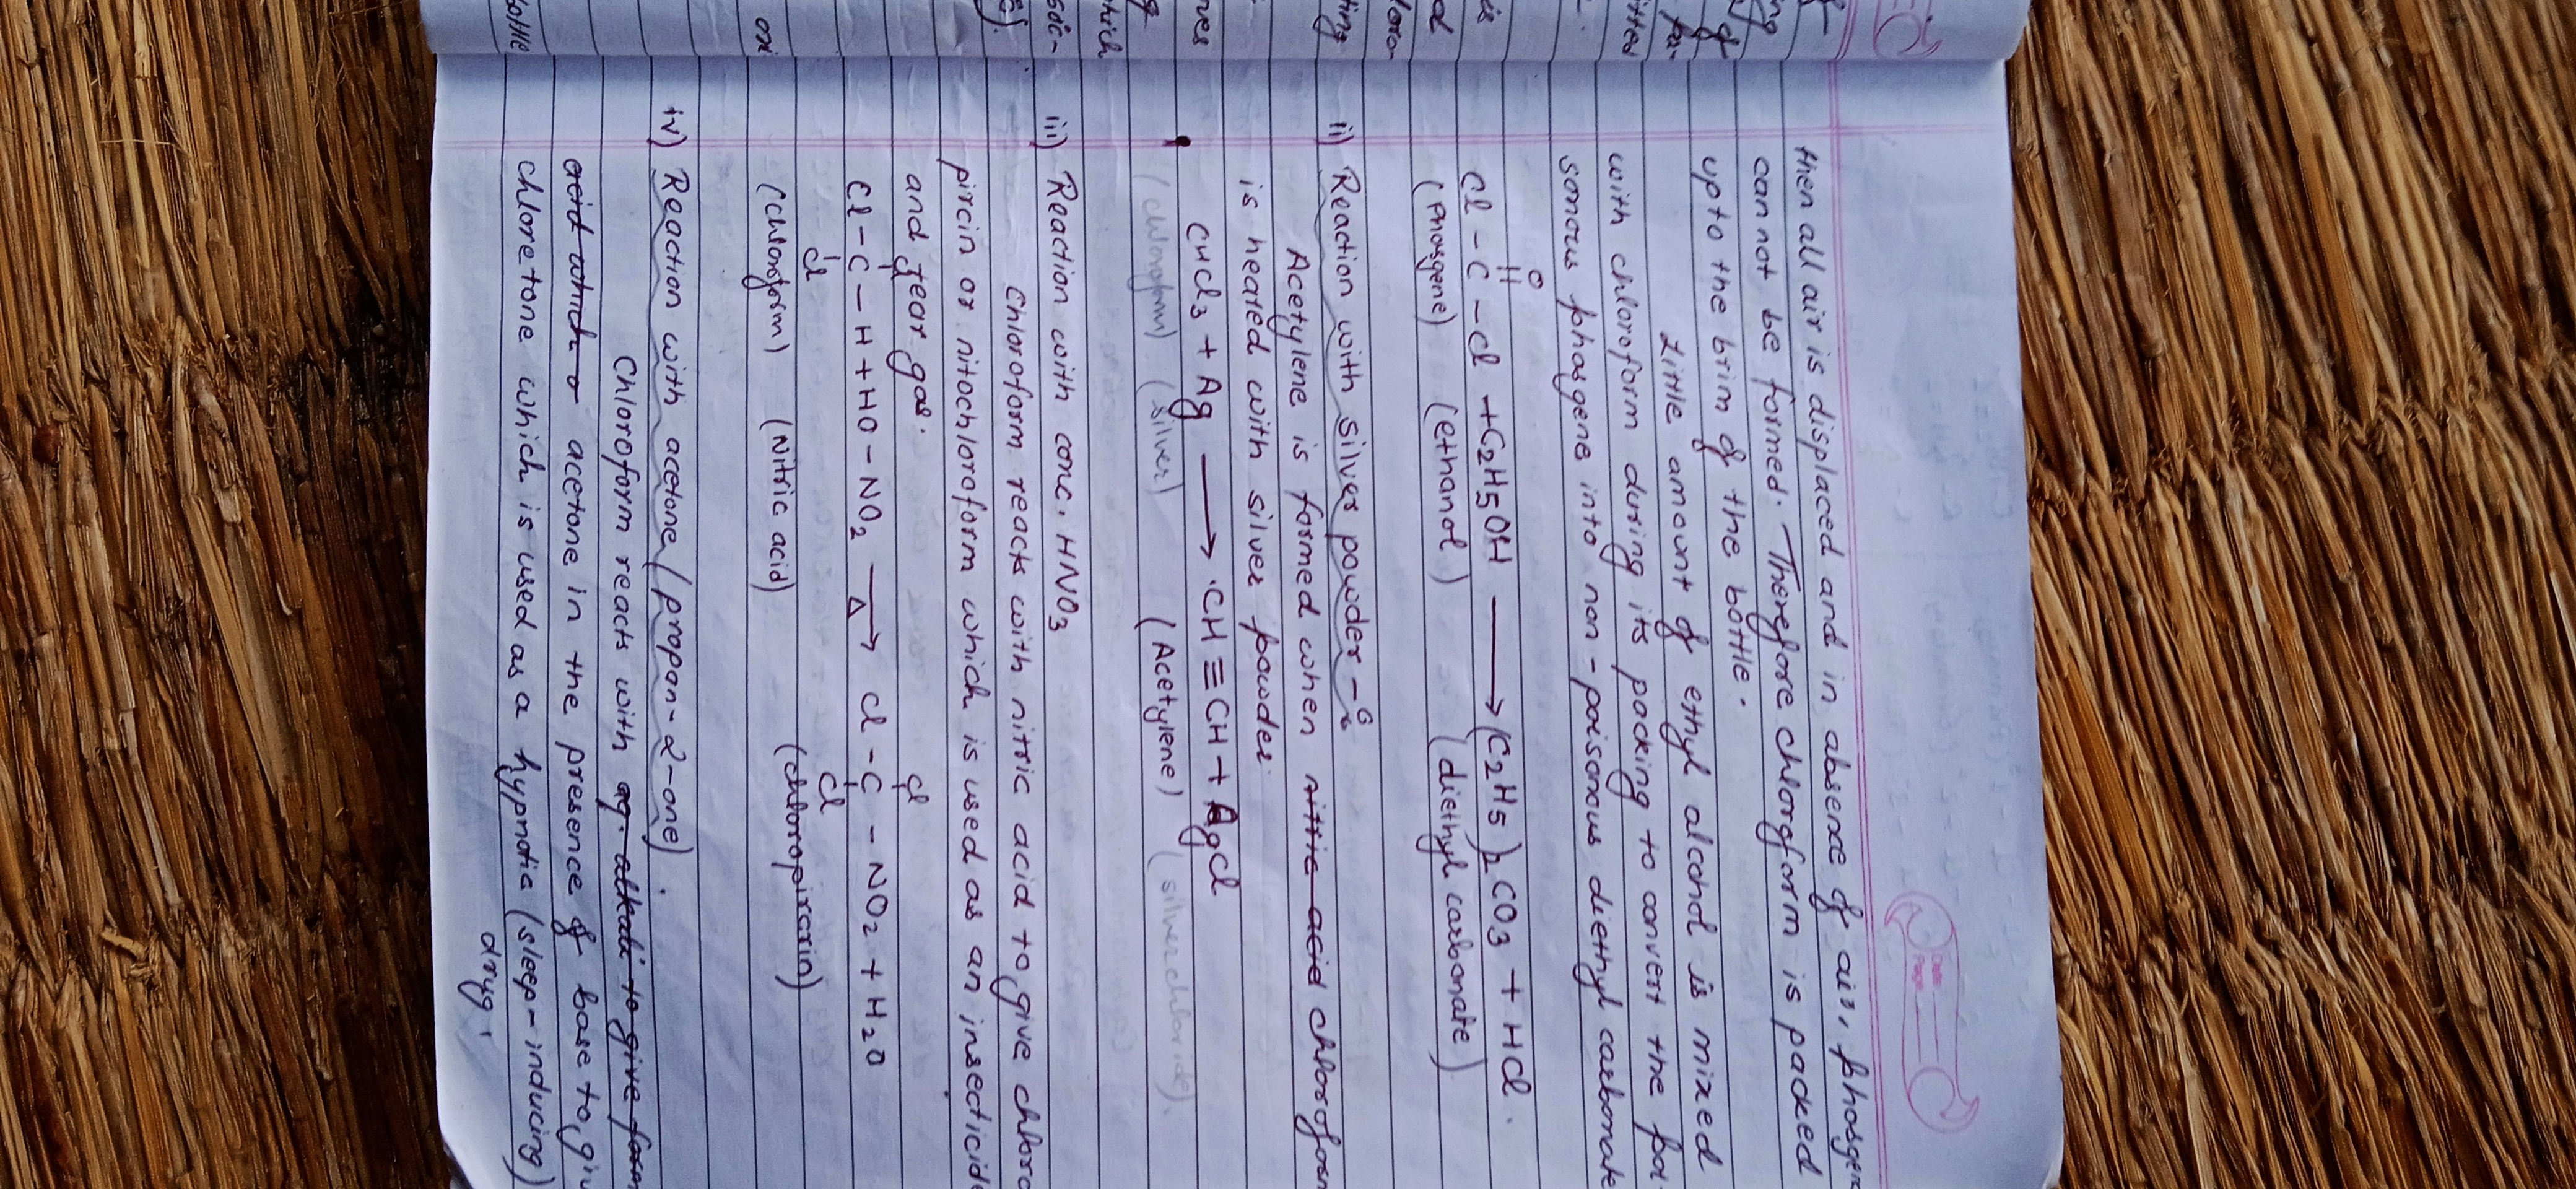 Date
Page
then all air is displaced and in absence of air, phosgene
cannot be formed. Therefore chloroform is packed
upto the brim of the bottle.
Little amount of ethyl alcohol is mixed
with chloroform during its packing to convert the poi-
sonous phosgene into non-poisonous diethyl carbonate
O
||
Cl - C - Cl + C2H5OH ⟶ (C2H5)2CO3 + HCl.
(Phosgene) (ethanol) (diethyl carbonate)
ii) Reaction with silver powder-
Acetylene is formed when nitric acid chloroform
is heated with silver powder.
CHCl3 + Ag ⟶ CH≡CH + AgCl
(chloroform) (silver) (Acetylene) (silver chloride).
iii) Reaction with conc. HNO3
Chloroform reacts with nitric acid to give chloro
pircin or nitochloroform which is used as an insecticide
and tear gas.
Cl Cl
Cl - C - H + HO - NO2 ⟶ Cl - C - NO2 + H2O
Δ
Cl Cl
(Chloroform) (Nitric acid) (chloropircrin)
iv) Reaction with acetone (propan-2-one).
Chloroform reacts with aq. alkali to give form
acid which acetone in the presence of base to giv
chloretone which is used as a hypnotic (sleep-inducing)
drug.